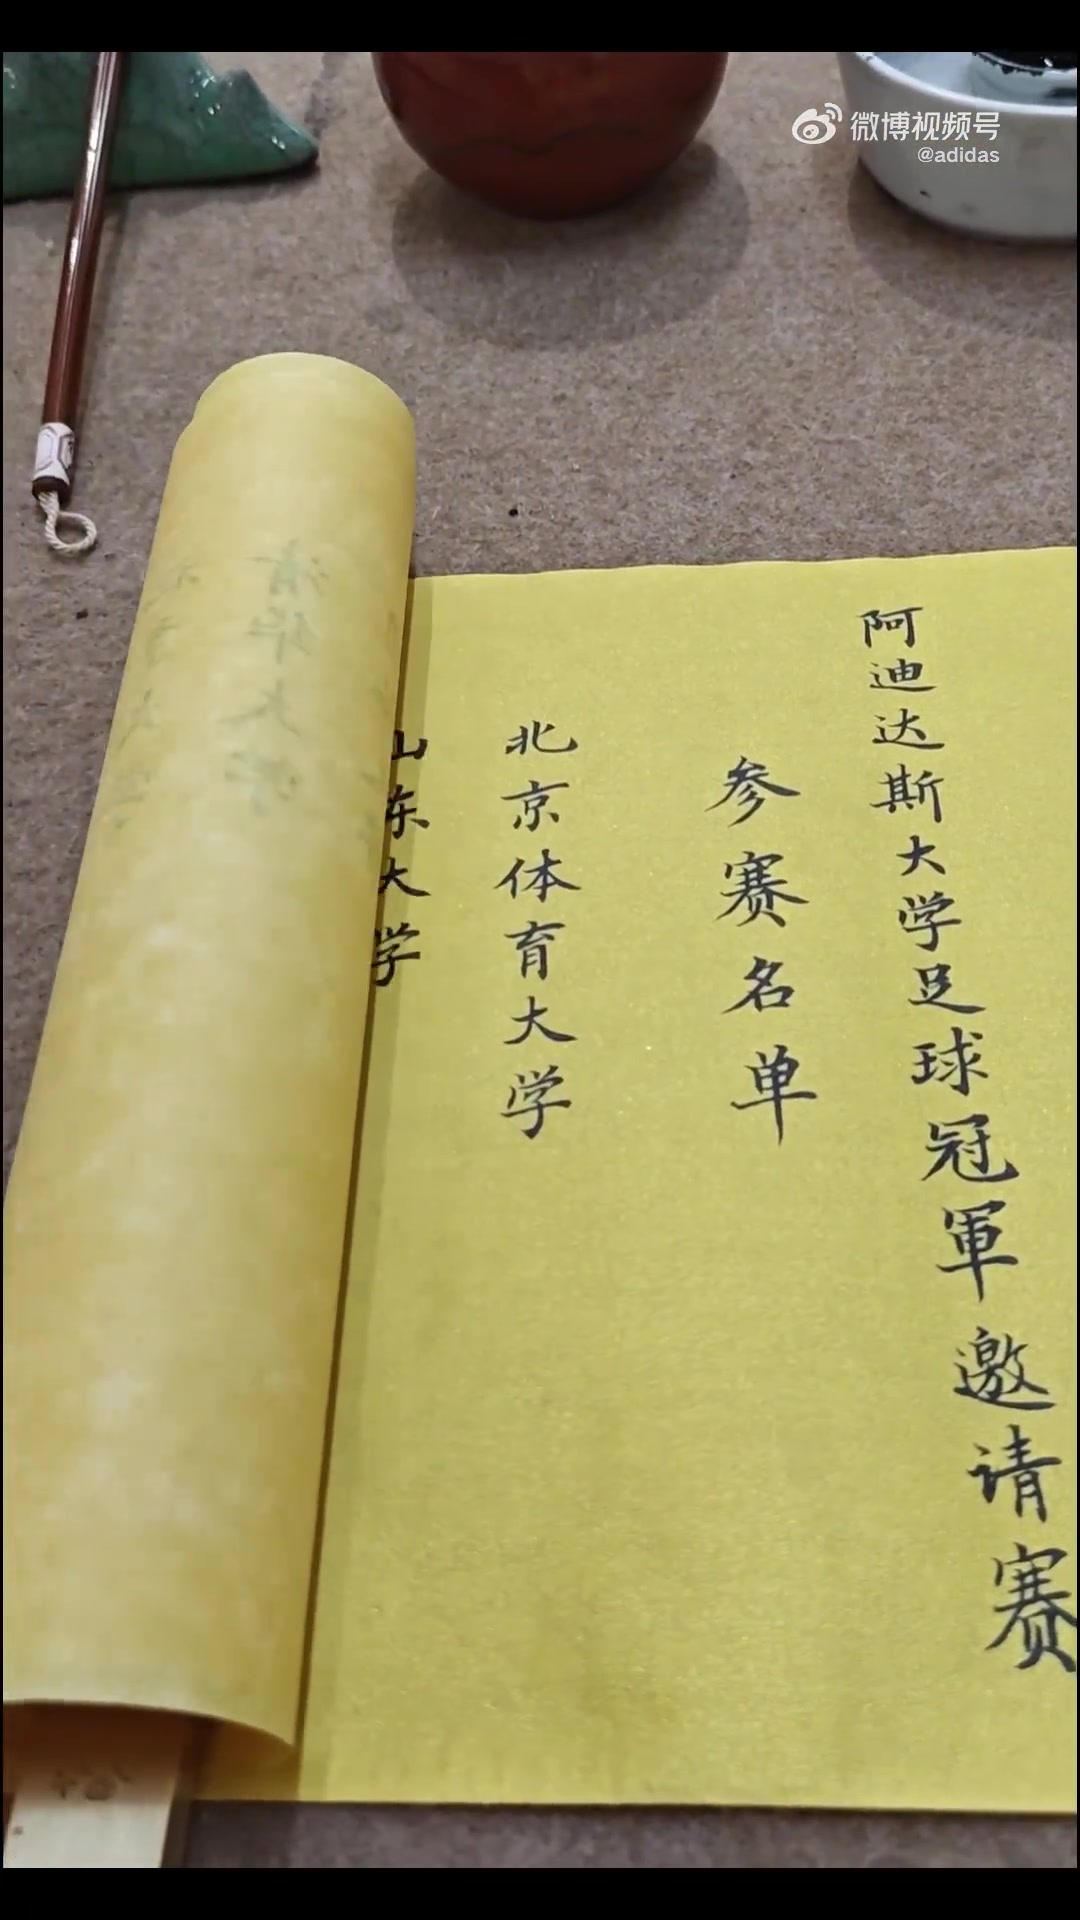 微博视频号
@adidas
阿迪达斯大学足球冠軍邀请赛
参赛名单
北京体育大学
山东大学
清华大学